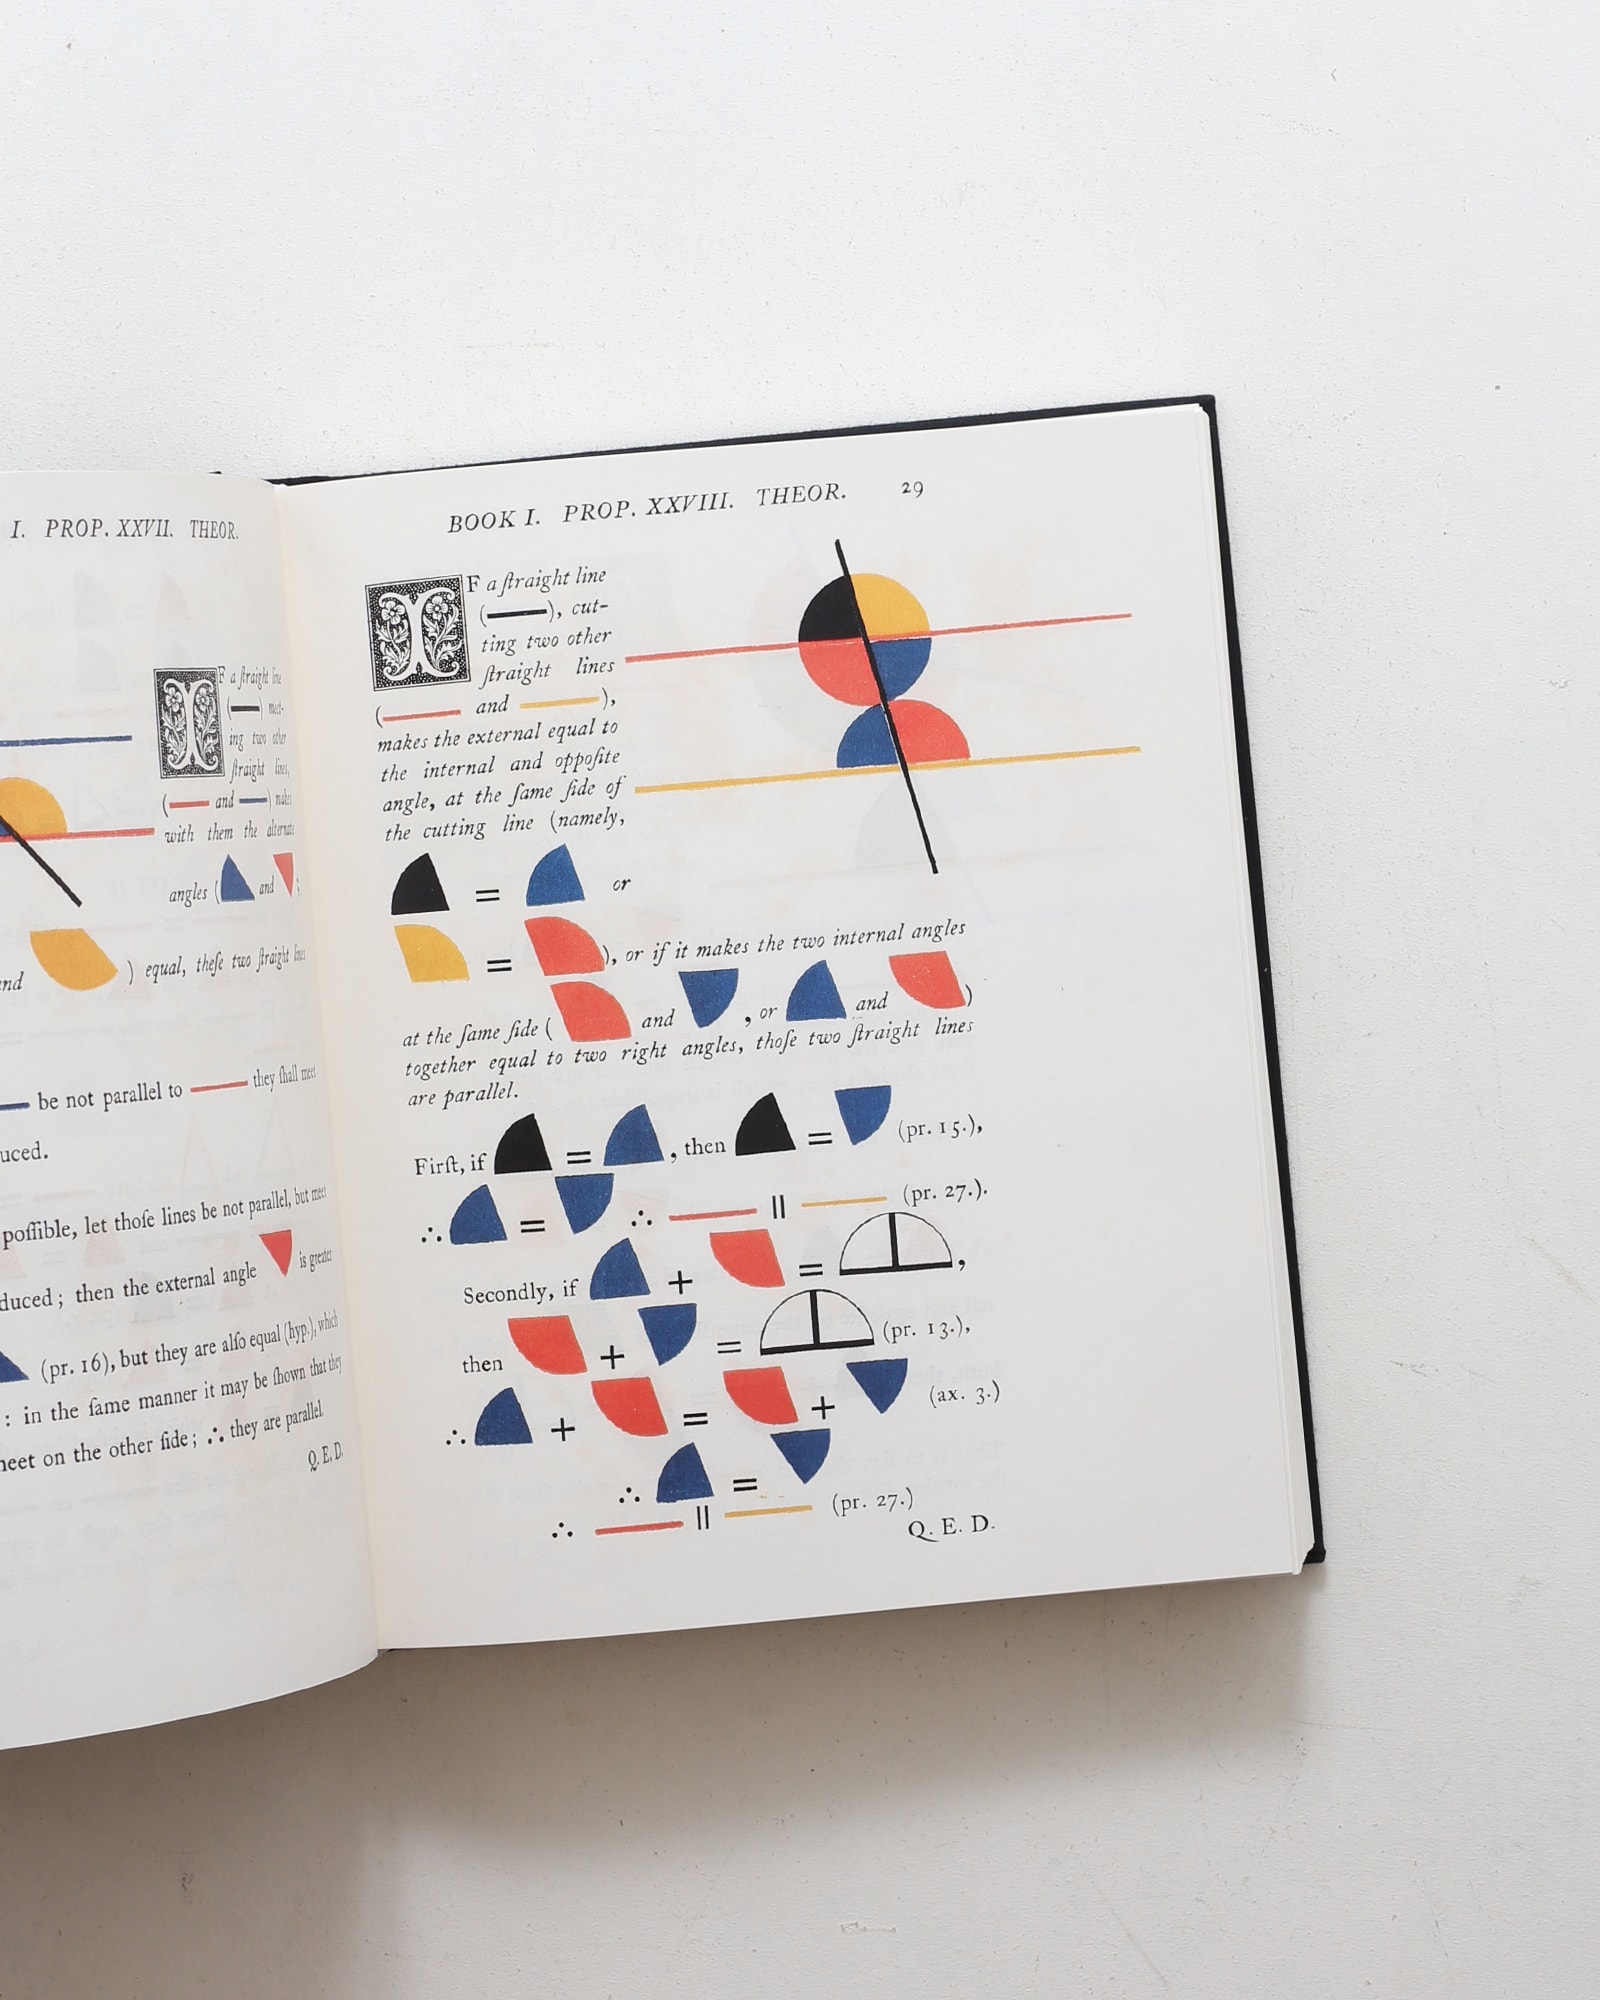 I. PROP. XXVII. THEOR.
IF a ſtraight line
( ) meet-
ing two other
ſtraight lines,
( and ) makes
with them the alternate
angles ( and ;
and ) equal, theſe two ſtraight lines
be not parallel to they ſhall meet
uced.
poſſible, let thoſe lines be not parallel, but meet
duced; then the external angle is greater
(pr. 16), but they are alſo equal (hyp.), which
: in the ſame manner it may be ſhown that they
meet on the other ſide; ∴ they are parallel.
Q. E. D.
BOOK I. PROP. XXVIII. THEOR. 29
IF a ſtraight line
( ), cut-
ting two other
ſtraight lines
( and ),
makes the external equal to
the internal and oppoſite
angle, at the ſame ſide of
the cutting line (namely,
= or
= ), or if it makes the two internal angles
at the ſame ſide ( and , or and )
together equal to two right angles, thoſe two ſtraight lines
are parallel.
Firſt, if = , then = (pr. 15.),
∴ = ∴ || (pr. 27.).
Secondly, if + = ,
then + = (pr. 13.),
∴ + = + (ax. 3.)
∴ =
∴ || (pr. 27.)
Q. E. D.